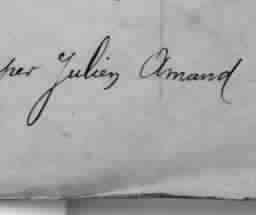 per Julien Amand